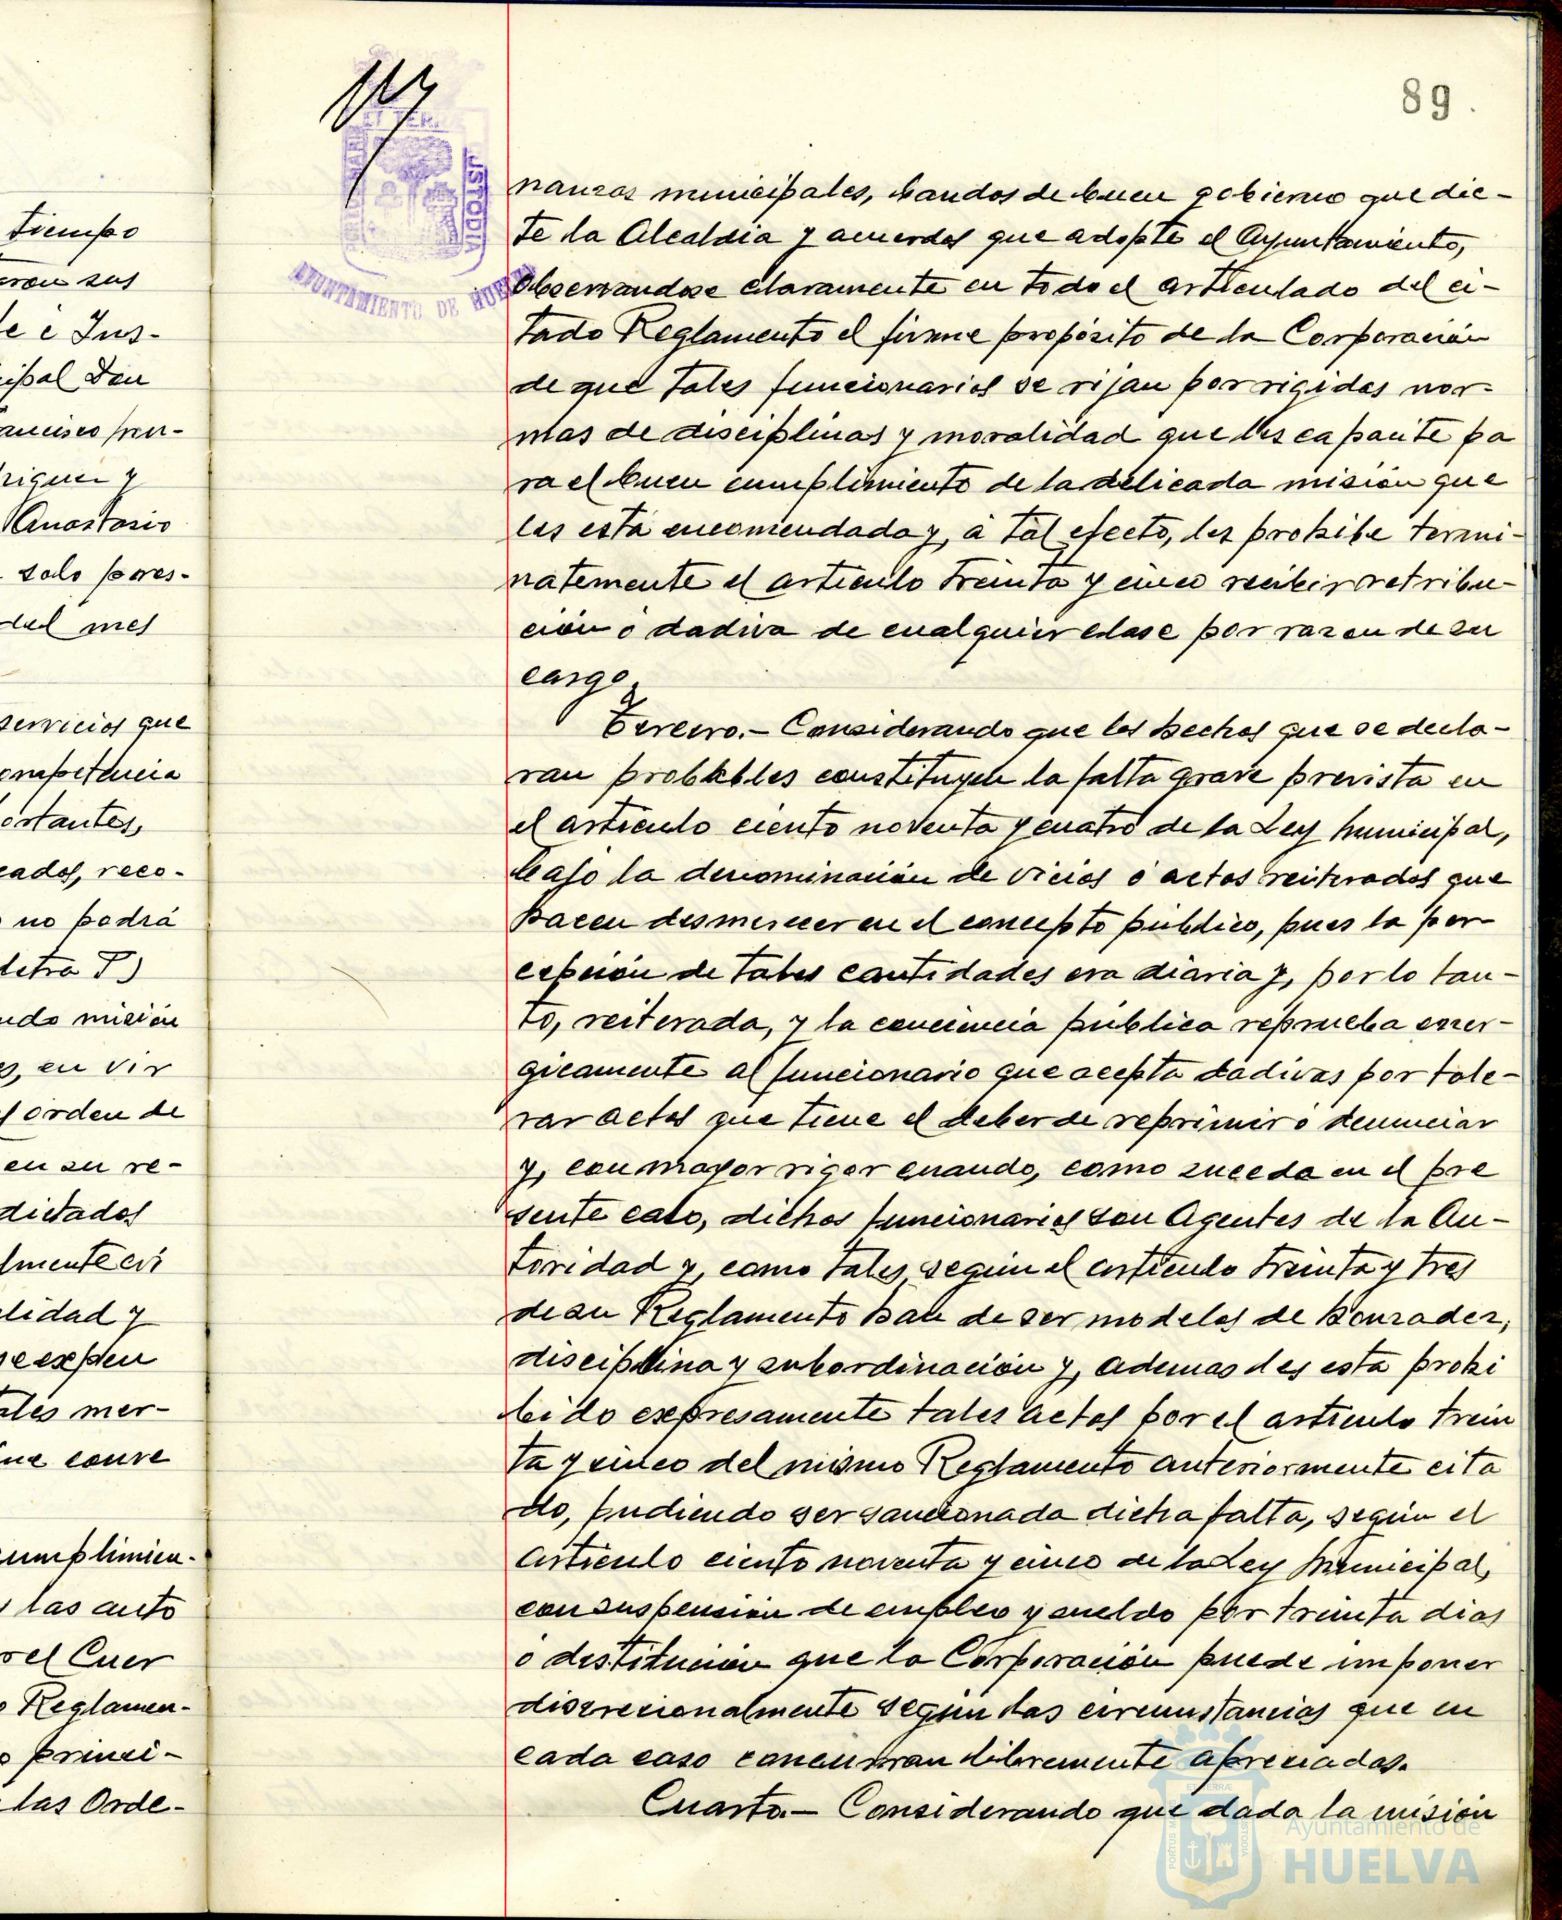 89.
tiempo
ron sus
le é Ins-
cipal Don
ancisco
riguez y
Anastasio
solo pares-
del mes
servicios que
competencia
ortantes,
cados, reco-
no podrá
letra T)
ndo misión
en vir
orden de
en su re-
dictados
lmente
lidad y
se expen
ales mer-
ue conve
cumplimien-
las auto
el Cuer
Reglamen-
princi-
las Orde-
USTODIA
AYUNTAMIENTO DE HUELVA
nanzas municipales, bandos de buen gobierno que dic-
te la Alcaldia y acuerdos que adopte el Ayuntamiento,
observandose claramente en todo el articulado del ci-
tado Reglamento el firme propósito de la Corporación
de que tales funcionarios se rijan por rigidas nor-
mas de disciplinas y moralidad que les capacite pa
ra el buen cumplimiento de la delicada misión que
les está encomendada y, á tal efecto, les prohibe termi-
natemente el articulo treinta y cinco recibir retribu-
ción ó dadiva de cualquier clase por razon de su
cargo.
Tercero.- Considerando que los hechos que se decla-
ran probables constituyen la falta grave prevista en
el articulo ciento noventa y cuatro de la Ley Municipal,
bajo la denominación de vicios ó actos reiterados que
hacen desmerecer en el concepto público, pues la per-
cepción de tales cantidades era diaria y, por lo tan-
to, reiterada, y la conciencia pública reprueba ener-
gicamente al funcionario que acepta dadivas por tole-
rar actos que tiene el deber de reprimir ó denunciar
y, con mayor rigor cuando, como suceda en el pre
sente caso, dichos funcionarios son Agentes de la Au-
toridad y, como tales, según el articulo treinta y tres
de su Reglamento han de ser modelos de honradez,
disciplina y subordinación y, ademas les está prohi
bido expresamente tales actos por el articulo trein
ta y cinco del mismo Reglamento anteriormente cita
do, pudiendo ser sancionada dicha falta, según el
articulo ciento noventa y cinco de la Ley Municipal,
con suspensión de empleo y sueldo por treinta dias
ó destitución que la Corporación puede imponer
discrecionalmente según las circunstancias que en
cada caso concurran libremente apreciadas.
Cuarto.- Considerando que dada la misión
Ayuntamiento de
HUELVA